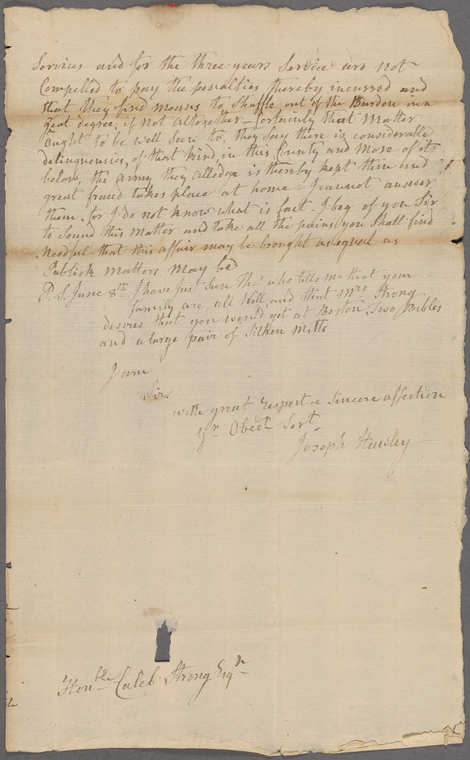 Services and for the three years Service are not
Compelled to pay the penalties thereby incurred and
that they find means to Shuffle out of the Burden in a
great degree, if not altogether - Certainly that Matter
ought to be well Seen to, they Say there is considerable
delinquencies, of that kind, in this County and more of it
below, the army they alledge is thereby kept thin and
great fraud takes place at home - I cannot answer
them for I do not know what is fact - I beg of you Sir
to Sound this matter and take all the pains you Shall find
Needful that this affair may be brought as equal as
Publick matters may be
P.S. June 8th I have just Seen Tho: who tells me that your
family are all well and that Mrs. Strong
desires that you would get at Boston, Two Bibles
and a large pair of Silken Mitts
I am
Sir
with great respect & Sincere affection
yr. Obedt. Sert.
Joseph Hawley
Honble Caleb Strong Esqr